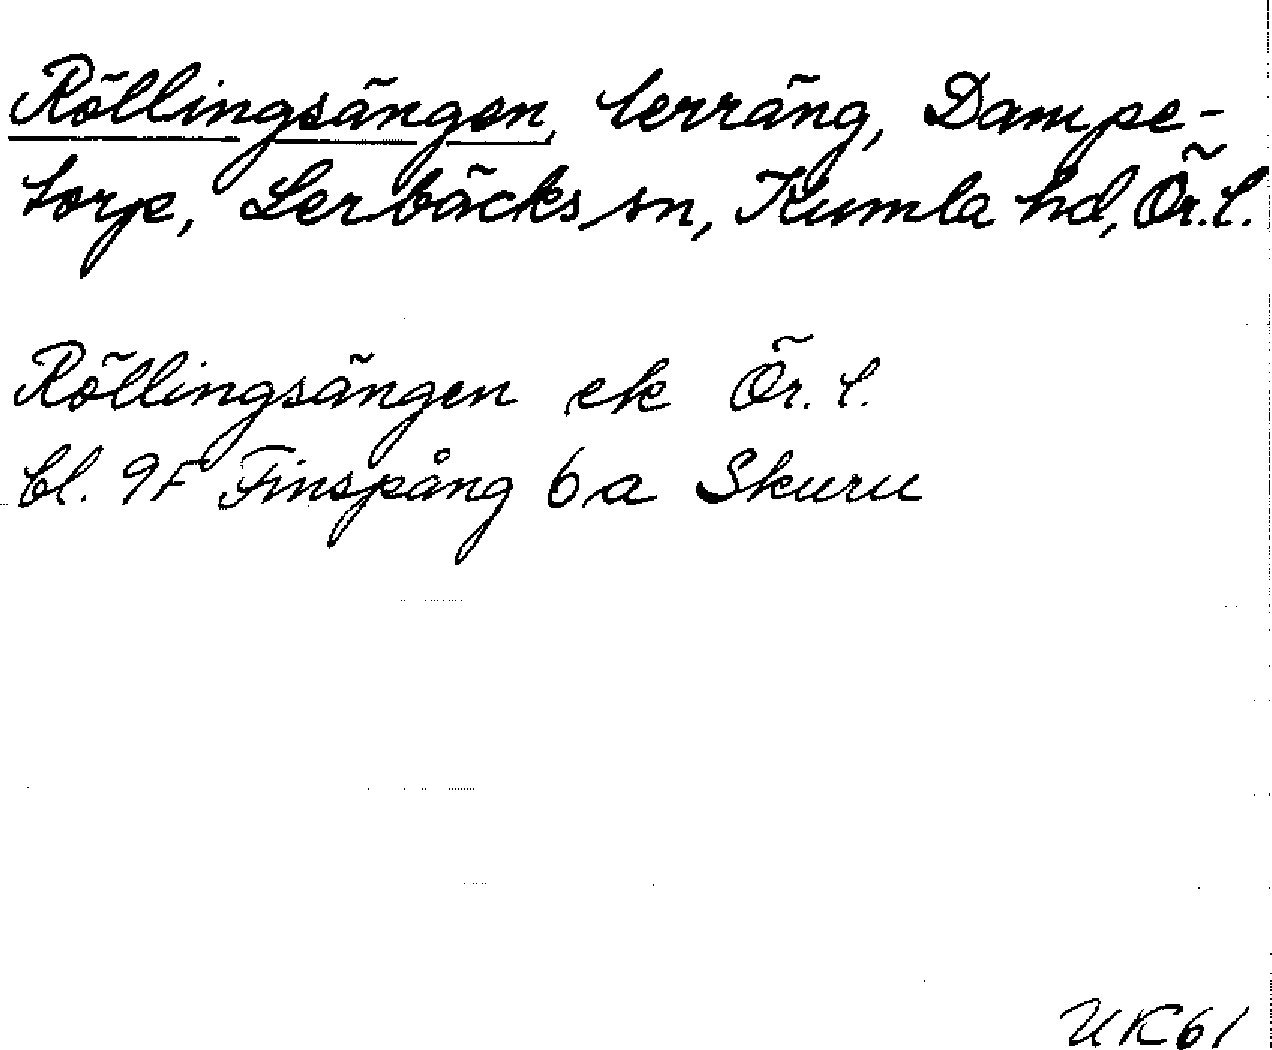 Röllingsängen, terräng, Dampe-
torp, Lerbäcks sn, Kumla hd, Ör. l.
Röllingsängen ek Ör. l.
bl. 9F Finspång 6 a Skuru
UK61